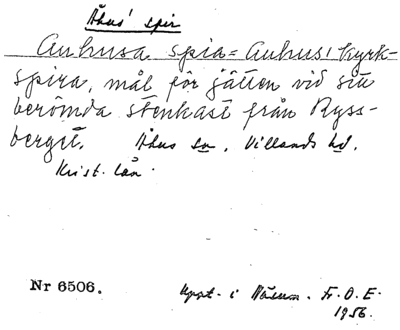 Åhus' spir
Auhusa spia = Auhus' kyrk-
spira, mål för jätten vid sitt
berömda stenkast från Ryss-
berget. Åhus sn, Villands hd,
Krist. län.
Nr 6506. Uppt. i Näsum. Fr. O. E.
1956.